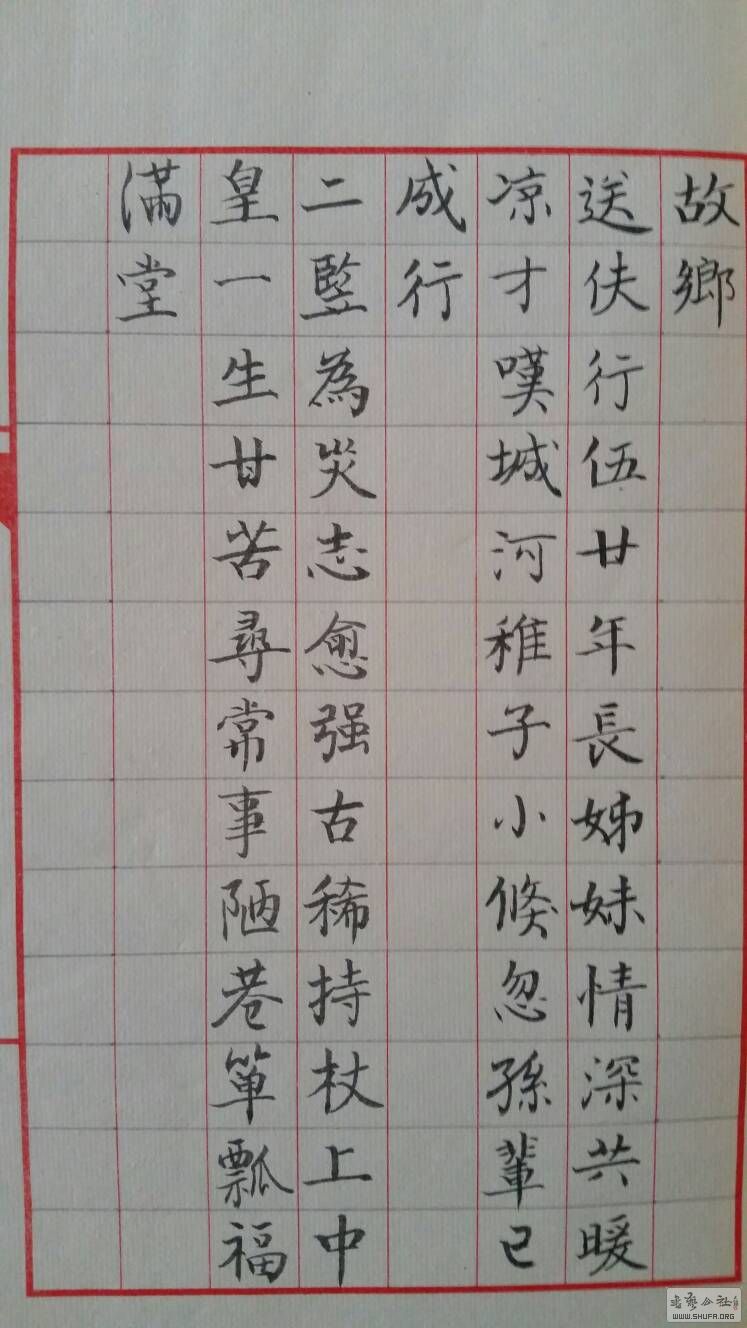 故鄉
送伕行伍廿年長姊妹情深共暖
凉才嘆城河稚子小倏忽孫輩已
成行
二竪為災志愈强古稀持杖上中
皇一生甘苦尋常事陋巷簞瓢福
滿堂
WWW.SHUFA.ORG